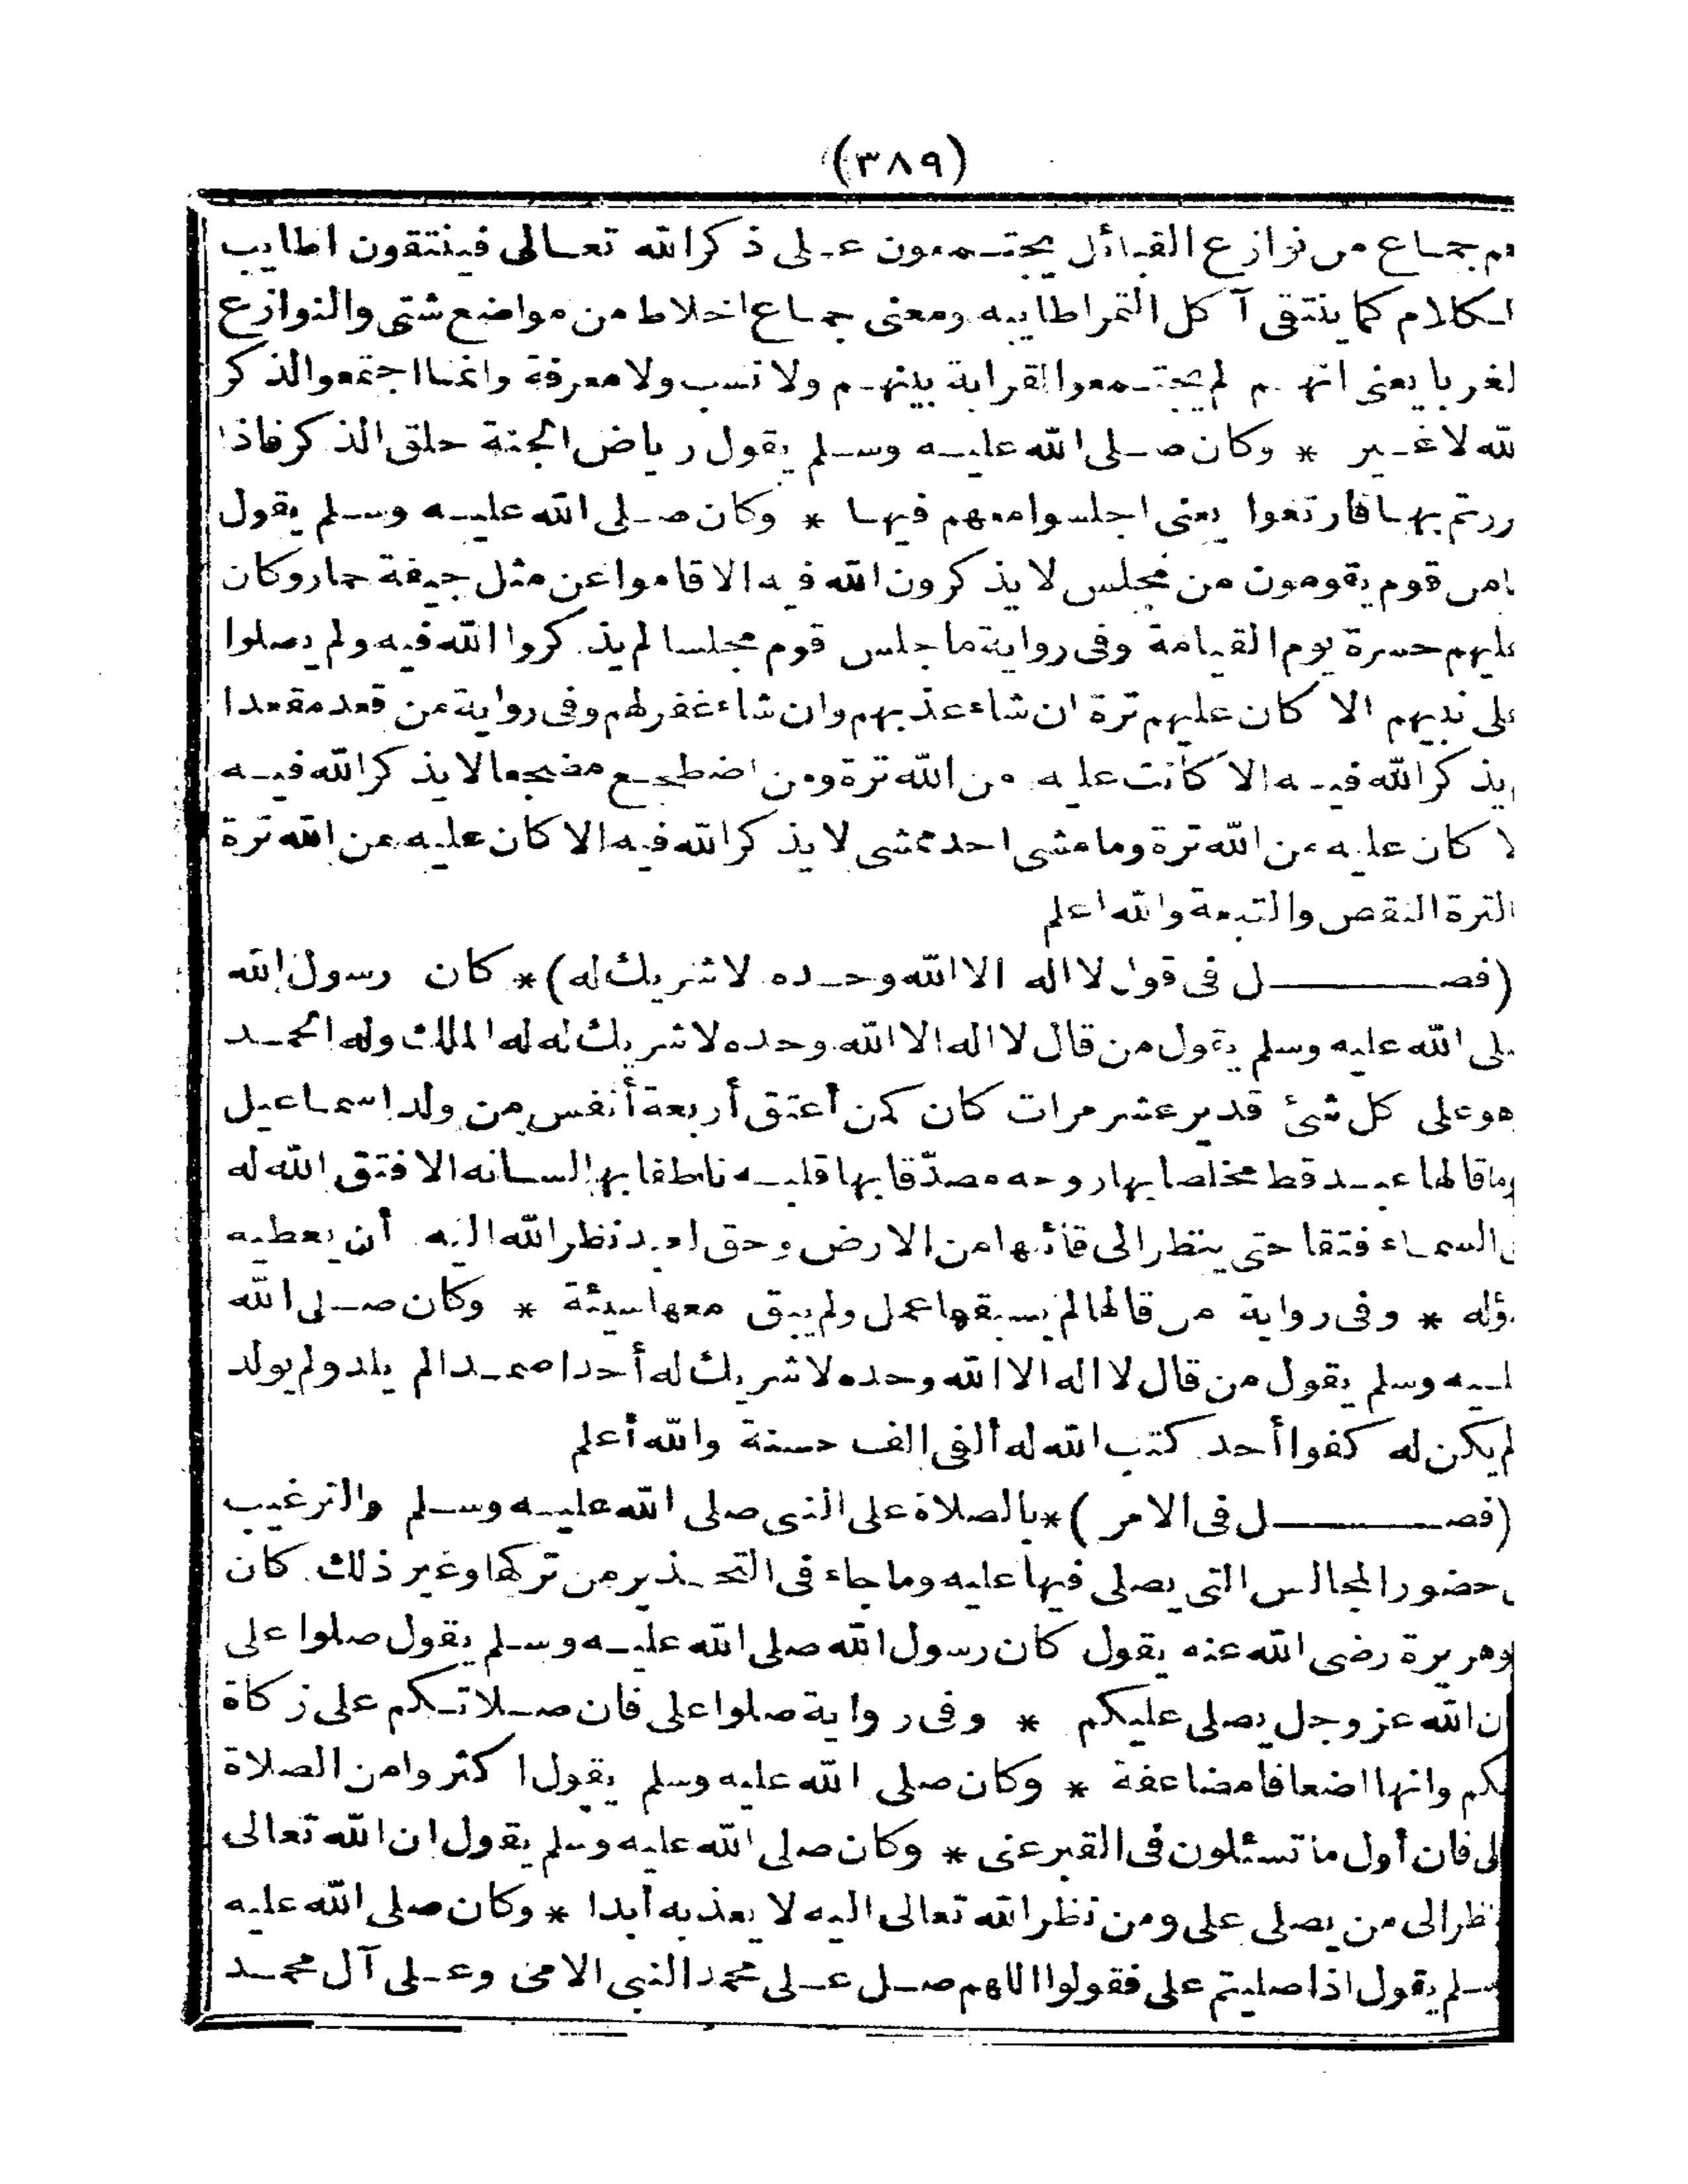 (٣٨٩)
هم جماع من نوازع القبائل يجتمعون على ذكر الله تعالى فينتقون اطايب
الكلام كما ينتقى آكل التمر اطاييه ومعنى جماع اخلاط من مواضع شتى والنوازع
لغربا يعنى انهم لم يجتمعوا لقرابة بينهم ولا نسب ولا معرفة وانما اجتمعوا لذكر
لله لا غير * وكان صلى الله عليه وسلم يقول رياض الجنة حلق الذكر فاذا
ررتم بها فارتعوا يعنى اجلسوا معهم فيها * وكان صلى الله عليه وسلم يقول
امن قوم يقومون من مجلس لا يذكرون الله فيه الا قاموا عن مثل جيفة حمار وكان
عليهم حسرة يوم القيامة وفى رواية ما جلس قوم مجلسا لم يذكروا الله فيه ولم يصلوا
على نبيهم الا كان عليهم ترة ان شاء عذبهم وان شاء غفر لهم وفى رواية من قعد مقعدا
يذكر الله فيه الا كانت عليه من الله ترة ومن اضطجع مضجعا لا يذكر الله فيه
لا كان عليه من الله ترة وما مشى احد ممشى لا يذكر الله فيه الا كان عليه من الله ترة
الترة النقص والتبعة والله اعلم
(فصــل فى قول لا اله الا الله وحده لا شريك له) * كان رسول الله
صلى الله عليه وسلم يقول من قال لا اله الا الله وحده لا شريك له له الملك وله الحمد
هو على كل شئ قدير عشر مرات كان كمن أعتق أربعة أنفس من ولد اسماعيل
وما قالها عبد قط مخلصا بها روحه مصدّقا بها قلبه ناطقا بها لسانه الا فتق الله له
السماء فتقا حتى ينظر الى قائلها من الارض وحق لعبد نظر الله اليه أن يعطيه
ؤله * وفى رواية من قالها لم يسبقها عمل ولم يبق معها سيئة * وكان صلى الله
ليه وسلم يقول من قال لا اله الا الله وحده لا شريك له أحدا صمدا لم يلد ولم يولد
لم يكن له كفوا أحد كتب الله له ألفى الف حسنة والله أعلم
(فصــل فى الامر) * بالصلاة على النبى صلى الله عليه وسلم والترغيب
حضور المجالس التى يصلى فيها عليه وما جاء فى التحذير من تركها وغير ذلك كان
وهريرة رضى الله عنه يقول كان رسول الله صلى الله عليه وسلم يقول صلوا على
ان الله عز وجل يصلى عليكم * وفى رواية صلوا على فان صلاتكم على زكاة
لكم وانها اضعافا مضاعفة * وكان صلى الله عليه وسلم يقول اكثروا من الصلاة
لى فان أول ما تسئلون فى القبر عنى * وكان صلى الله عليه وسلم يقول ان الله تعالى
نظر الى من يصلى على ومن نظر الله تعالى اليه لا يعذبه أبدا * وكان صلى الله عليه
سلم يقول اذا صليتم على فقولوا اللهم صل على محمد النبى الامى وعلى آل محمد